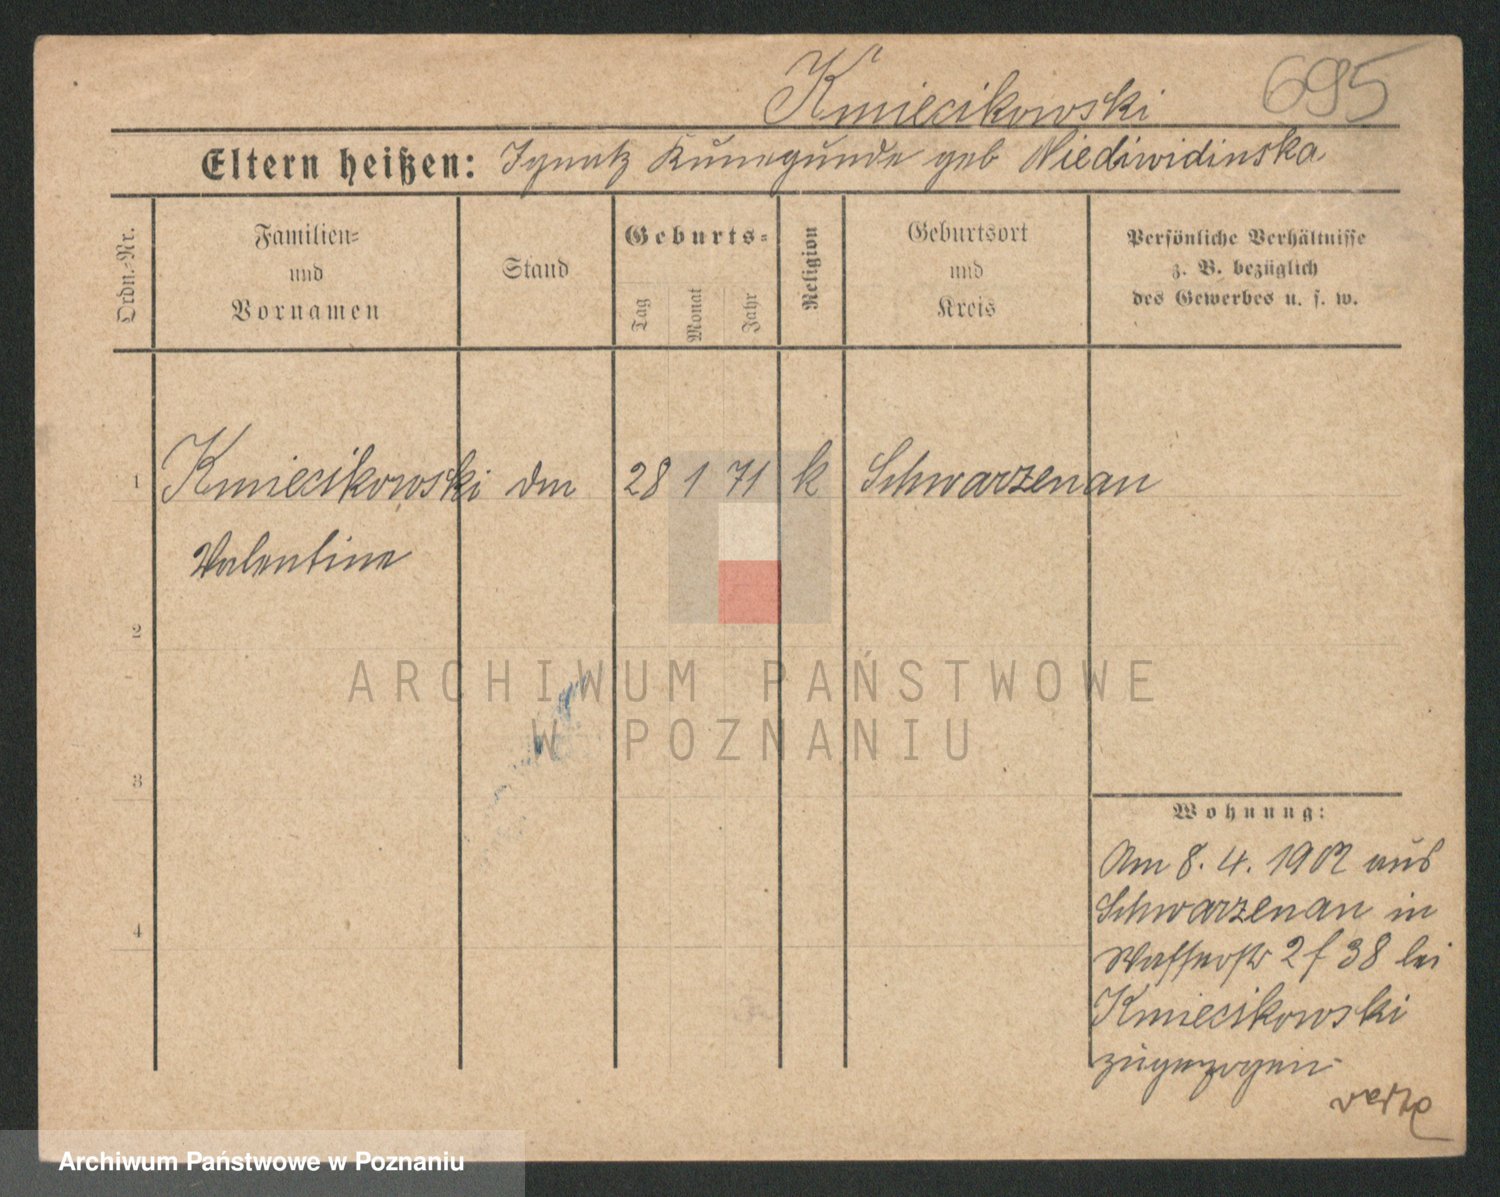 Kmiecikowski 695
Eltern heißen: Ignatz Kunegunde geb Niedzwidinska
Ordn.-Nr.
Familien-
und
Vornamen
Stand
Geburts-
Tag
Monat
Jahr
Religion
Geburtsort
und
Kreis
Persönliche Verhältnisse
z. B. bezüglich
des Gewerbes u. s. w.
1 Kmiecikowski 28 1 71 k Schwarzenau
Valentine
2
3
4
ARCHIWUM PAŃSTWOWE
W POZNANIU
Wohnung:
Am 8. 4. 1902 aus
Schwarzenau in
38 bei
Kmiecikowski
zugezogen
verte
Archiwum Państwowe w Poznaniu